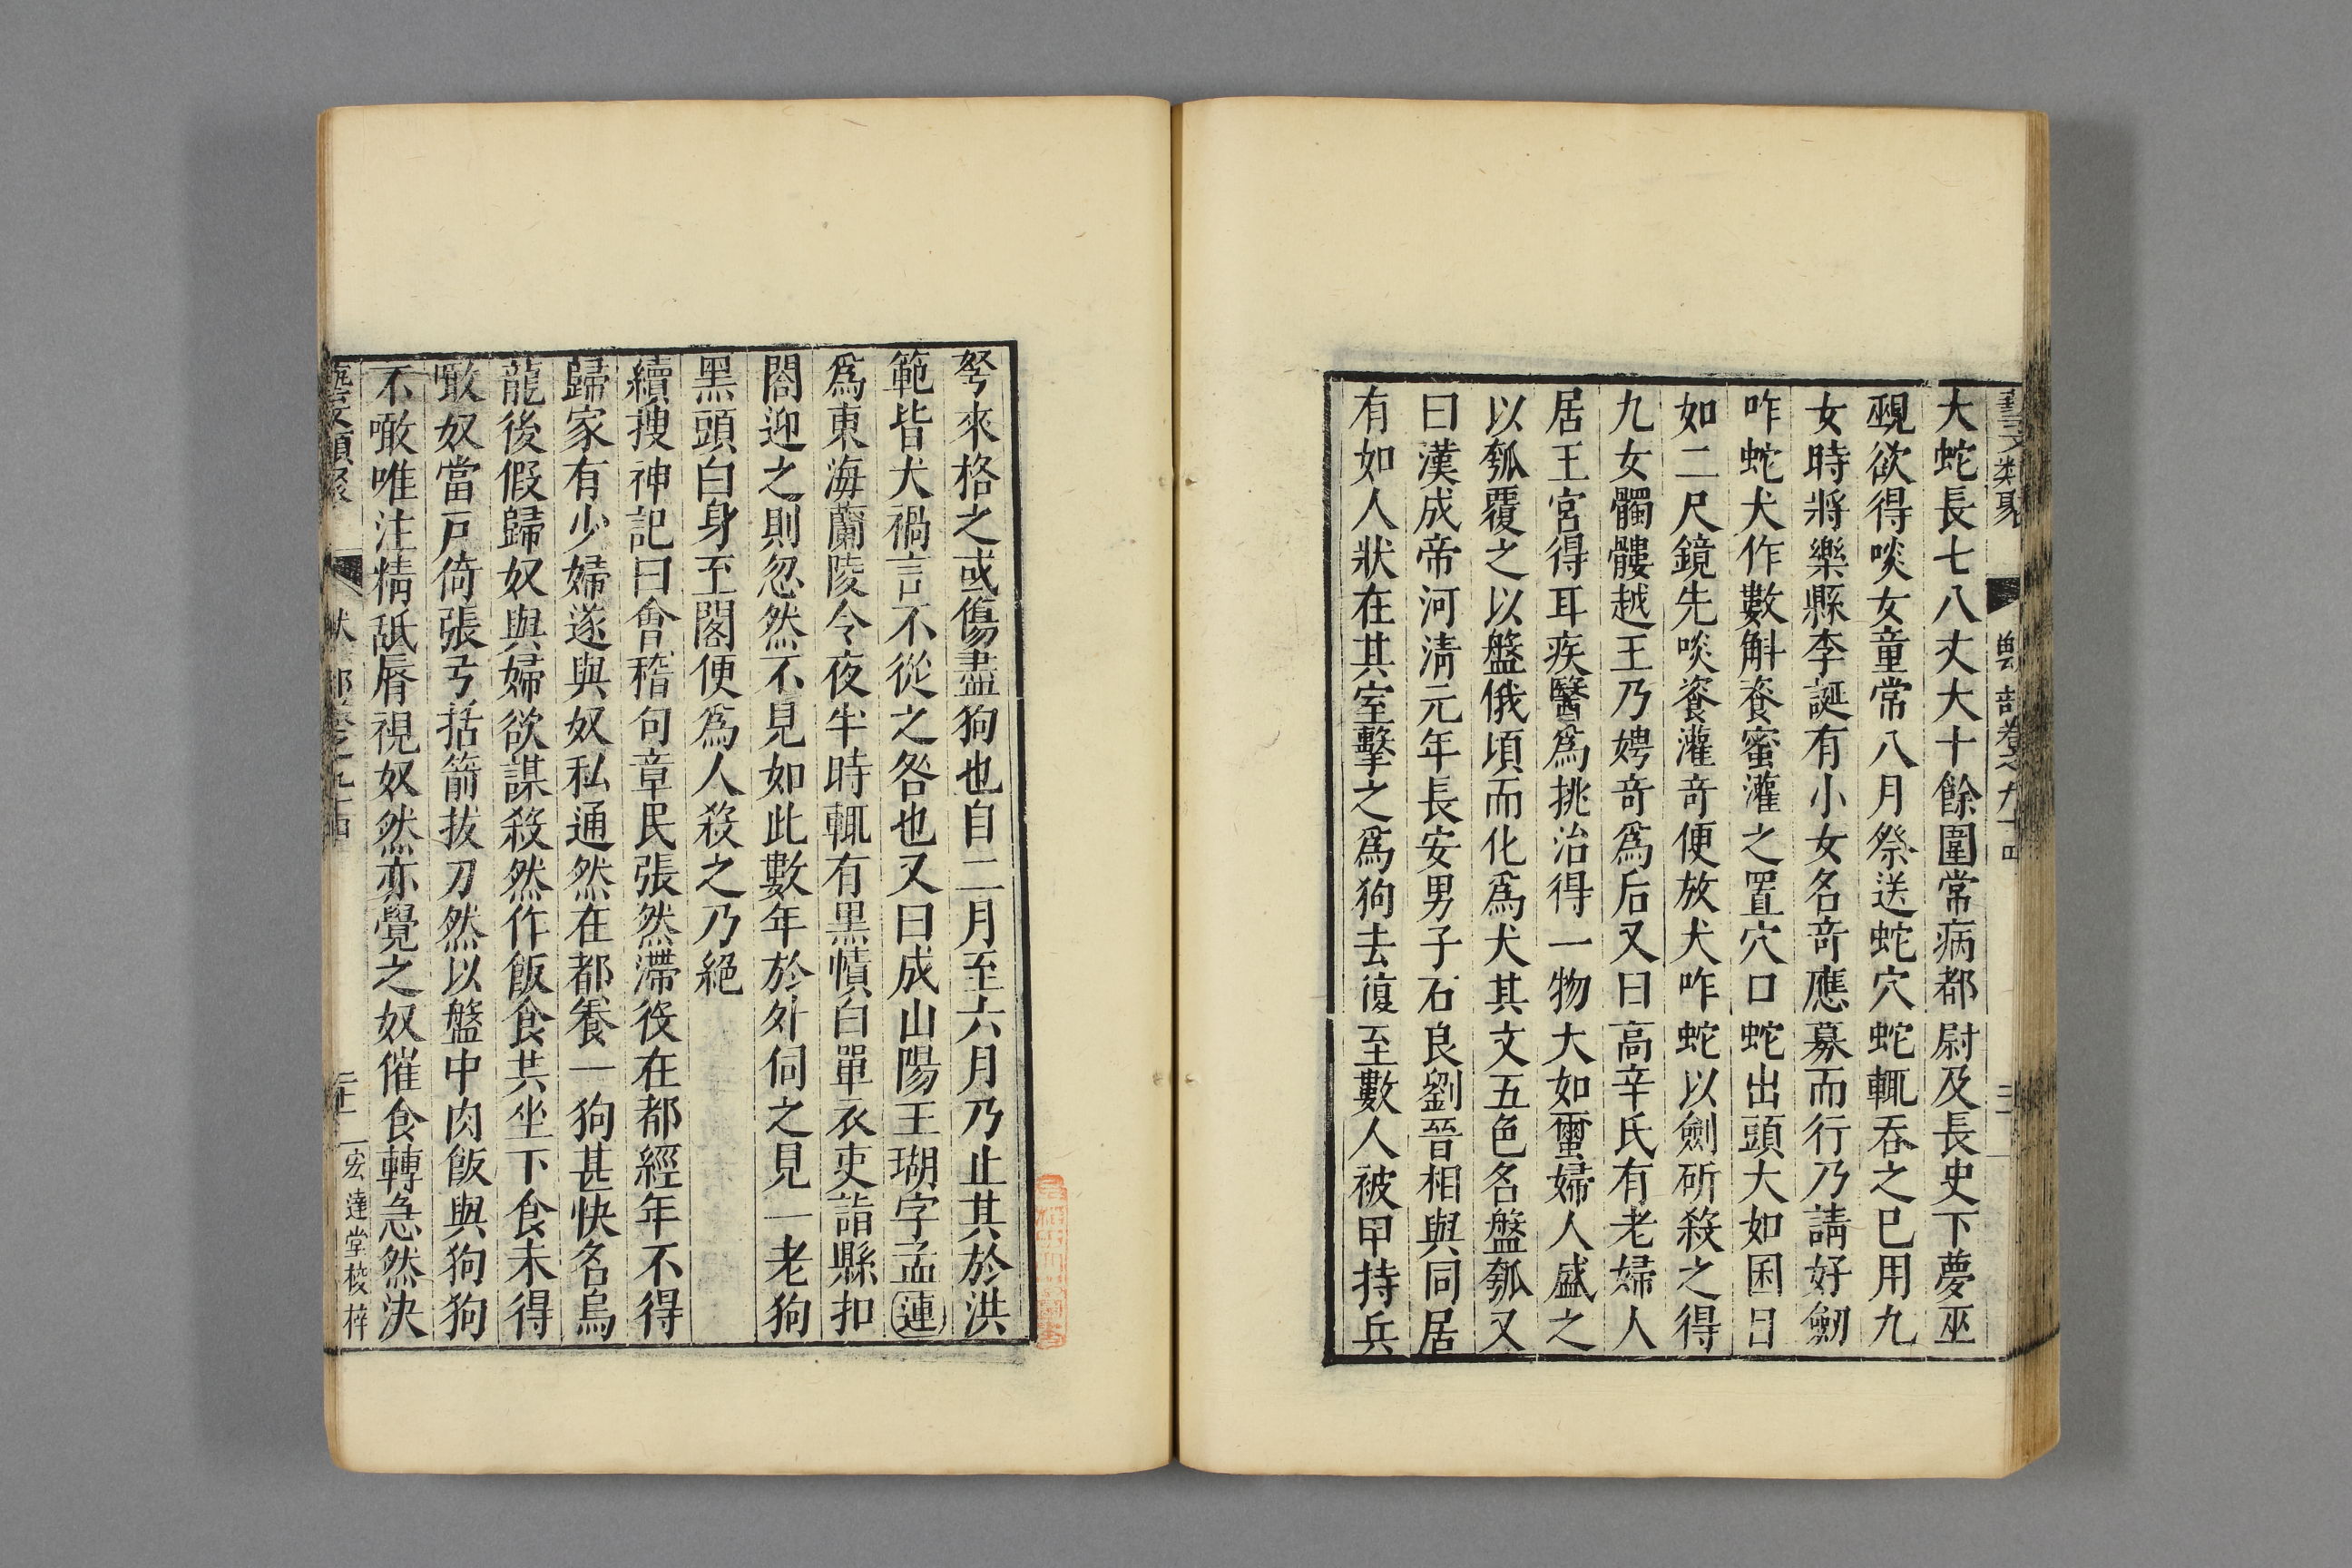 藝文類聚 獸部卷之九十四
大蛇長七八丈大十餘圍常病都尉及長史下夢巫
覡欲得啖女童常八月祭送蛇穴蛇輒吞之巳用九
女時將樂縣李誕有小女名竒應募而行乃請好劒
咋蛇犬作數斛餈蜜灌之置穴口蛇出頭大如囷目
如二尺鏡先啖餈灌竒便放犬咋蛇以劍斫殺之得
九女髑髏越王乃娉竒爲后又曰高辛氏有老婦人
居王宮得耳疾醫爲挑治得一物大如蠒婦人盛之
以瓠覆之以盤俄頃而化爲犬其文五色名盤瓠又
曰漢成帝河淸元年長安男子石良劉晉相與同居
有如人狀在其室擊之爲狗去復至數人被甲持兵
弩來格之或傷盡狗也自二月至六月乃止其於洪
範皆犬禍言不從之咎也又曰成山陽王瑚字孟璉
爲東海蘭陵令夜半時輒有黑幘白單衣吏詣縣扣
閤迎之則忽然不見如此數年於外伺之見一老狗
黑頭白身至閣便爲人殺之乃絕
續搜神記曰會稽句章民張然滯役在都經年不得
歸家有少婦遂與奴私通然在都養一狗甚快名烏
龍後假歸奴與婦欲謀殺然作飯食共坐下食未得
噉奴當戸倚張弓括箭拔刀然以盤中肉飯與狗狗
不噉唯注精舐脣視奴然亦覺之奴催食轉急然決
藝文類聚 獸部卷之九十四 宏達堂校梓